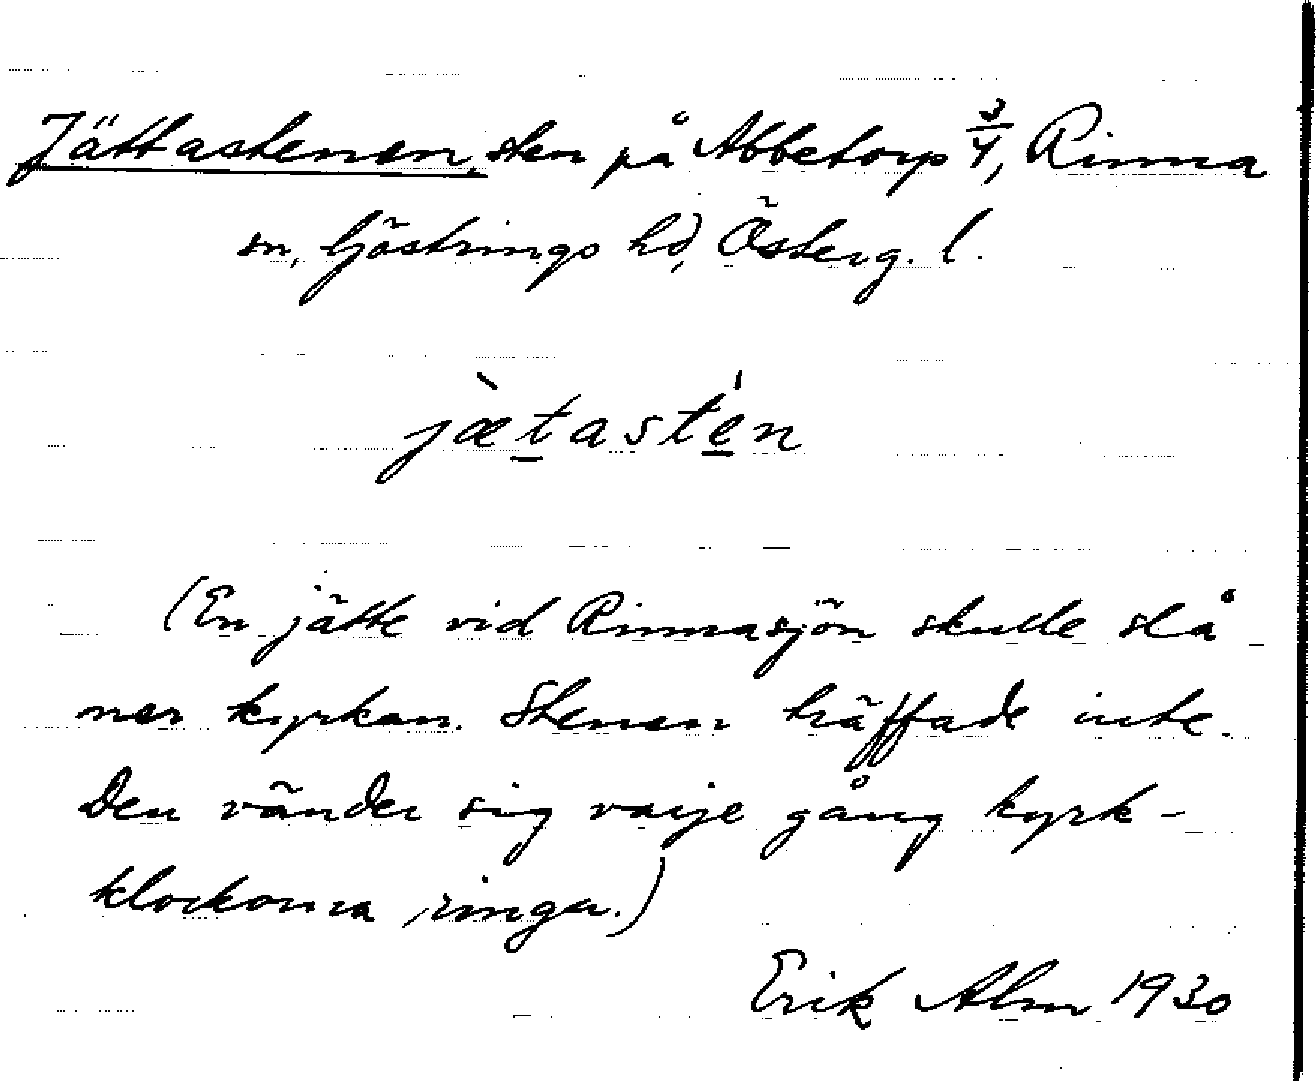 Jättastenen, sten på Abbetorp 3/4, Rinna
sn, Göstrings hd, Österg. l.
jætastén
(En jätte vid Rinnasjön skulle slå
ner kyrkan. Stenen träffade inte.
Den vänder sig varje gång kyrk-
klockorna ringer.)
Erik Alm 1930